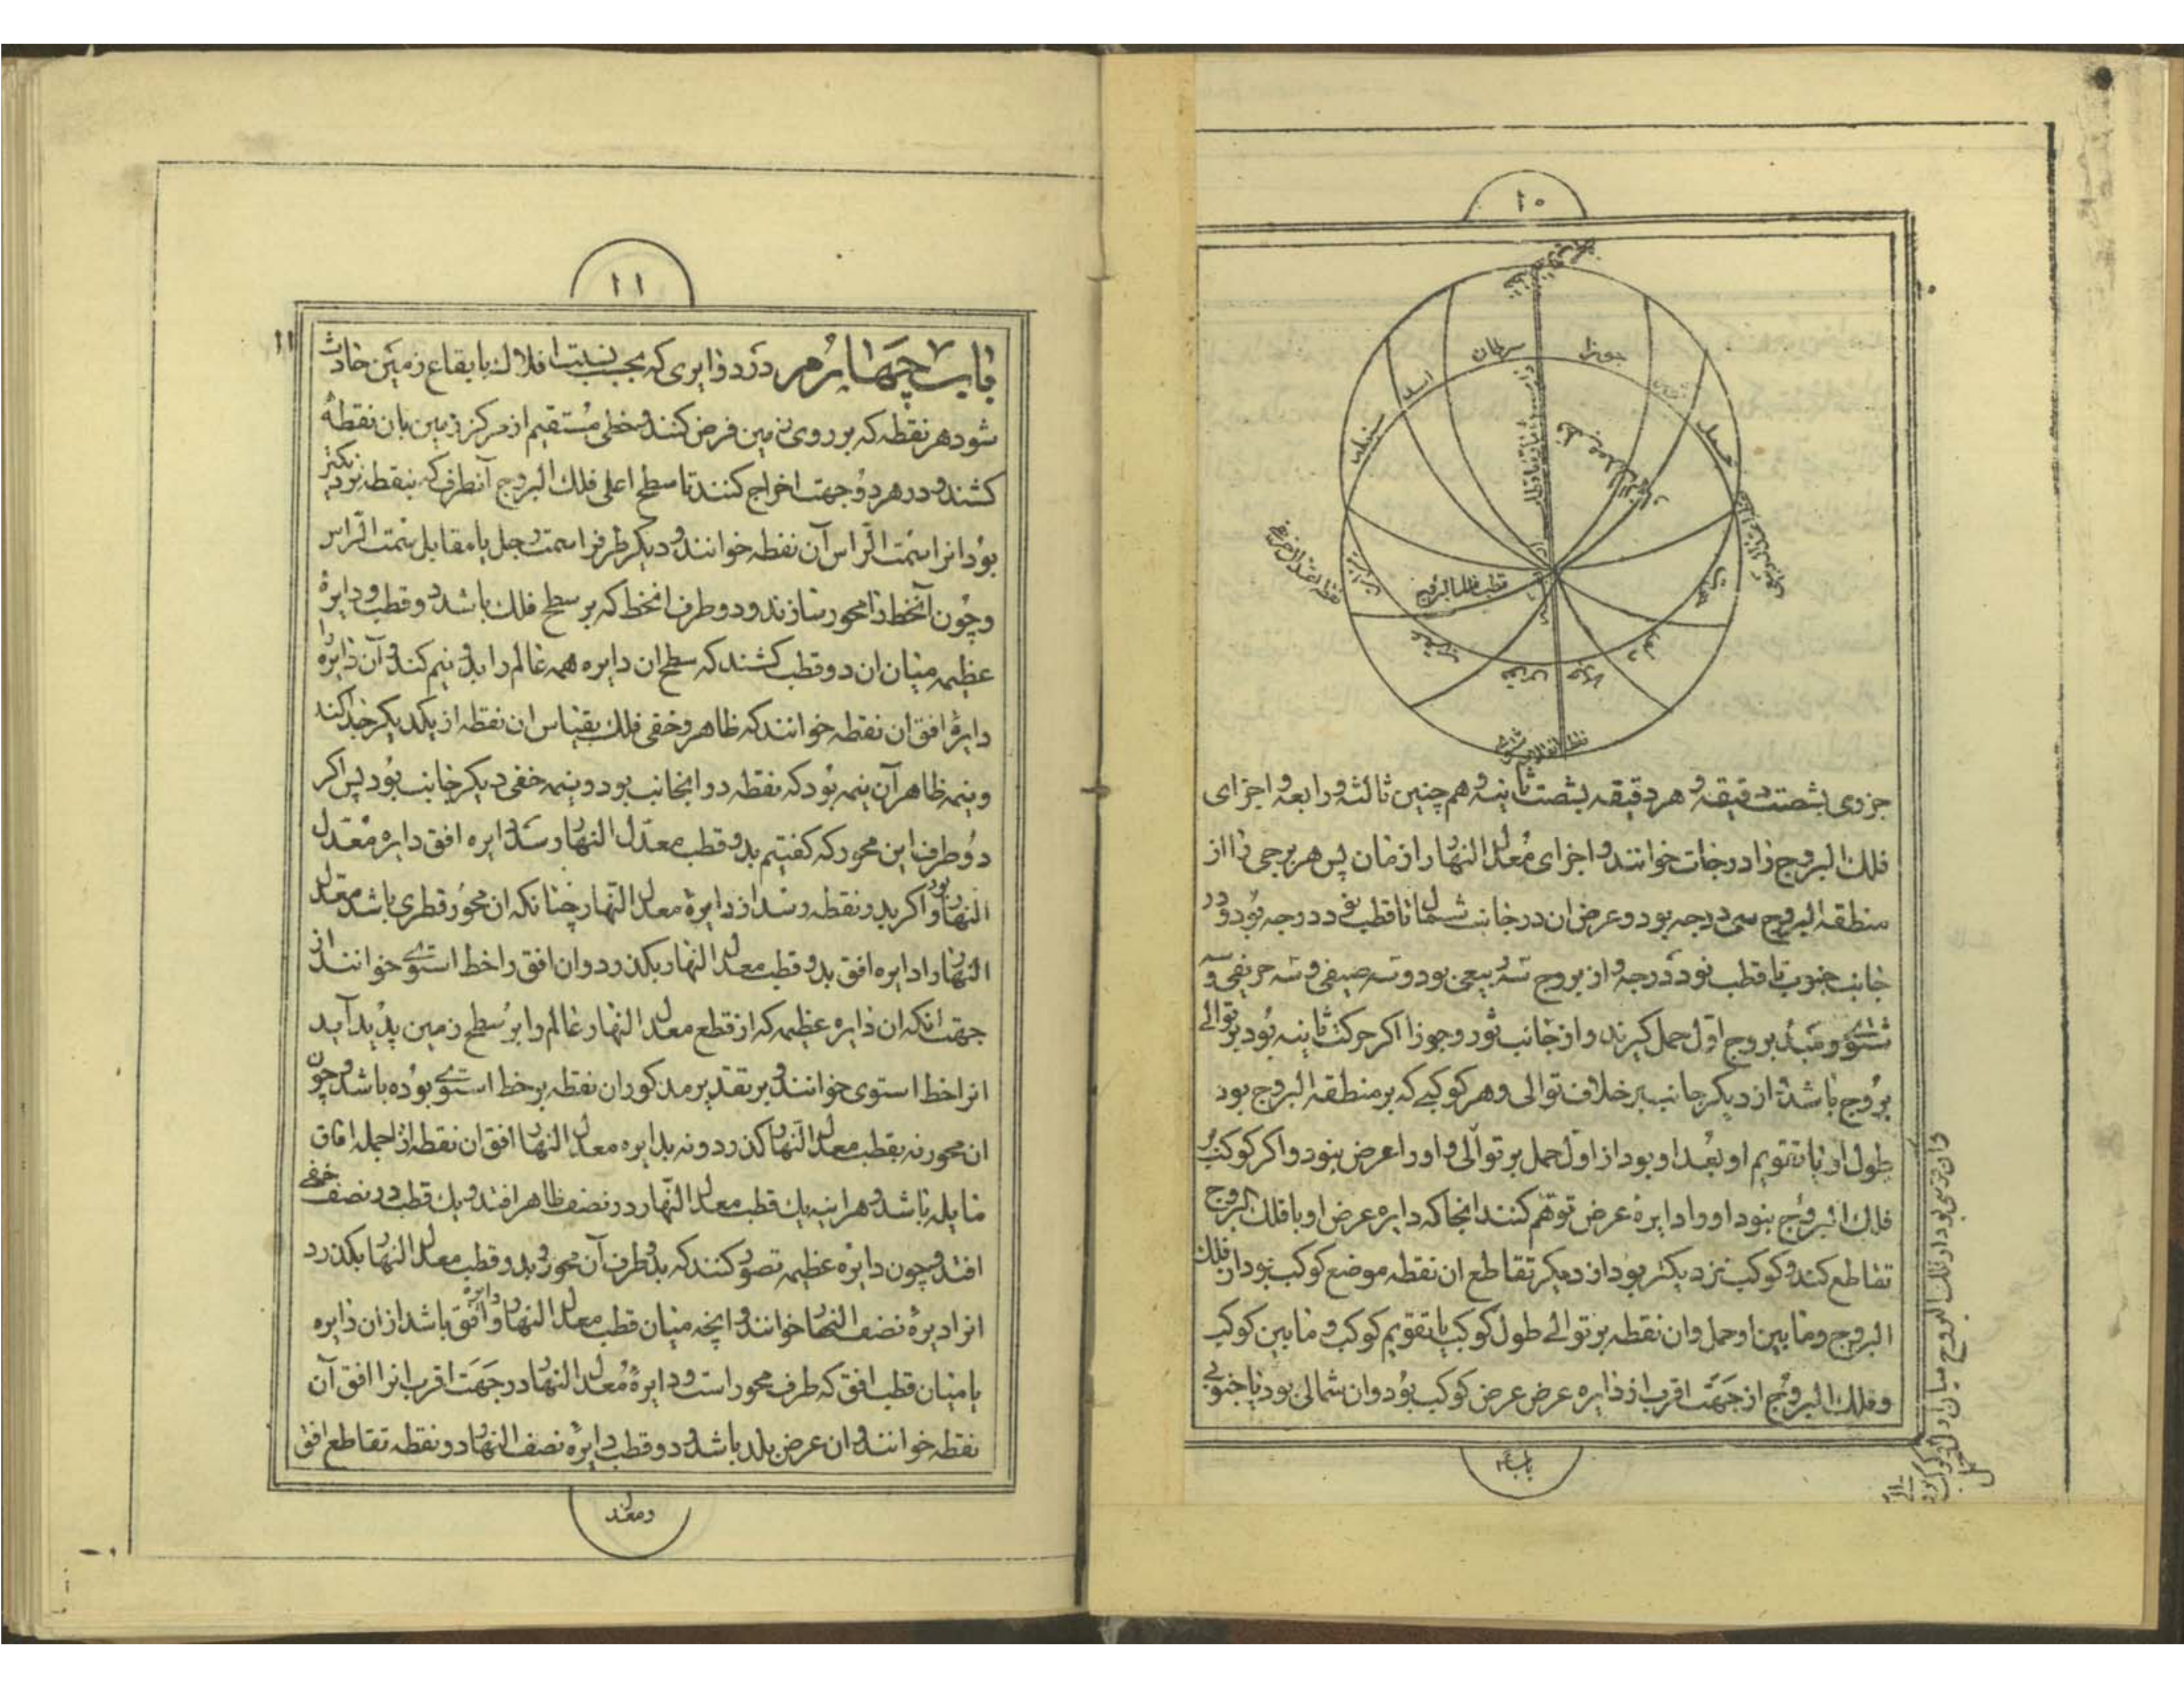 ١٠
سرطان
جوزا
اسد
ثور
سنبله
حمل
قطب معدل النهار
قطب فلك البروج
میزان
حوت
عقرب
قوس
جدی
دلو
نقطه انقلاب شتوی
جزوی بشصت دقیقه و هر دقیقه بشصت ثانیه و هم چنین ثالثه و رابعه و اجزای
فلك البروج را درجات خوانند و اجزای معدل النهار ازمان پس هر برجی را از
منطقه البروج سی درجه بود و عرض ان در جانب شمال تا قطب نود درجه بود و در
جانب جنوب تا قطب نود درجه و از بروج سه ربیعی بود و سه صیفی و سه خریفی و سه
شتوی و مبدء بروج اول حمل گیرند و از جانب ثور و جوزا اگر حرکت ثانیه بود بر توالی
بروج باشد و از دیگر جانب بر خلاف توالی و هر کوکبی که بر منطقه البروج بود
طول او یا تقویم او بعد او بود از اول حمل بر توالی و او را عرض نبود و اگر کوکب بر
فلك البروج نبود او را دایرهٔ عرض توهم کنند انجا که دایره عرض او با فلك البروج
تقاطع کند و کوکب نزدیکتر بود از دیگر تقاطع ان نقطه موضع کوکب بود از فلك
البروج و ما بین او حمل و ان نقطه بر توالی طول کوکب یا تقویم کوکب و ما بین کوکب
و فلك البروج از جهت اقرب از دایره عرض عرض کوکب بود و ان شمالی بود یا جنوبی
باب
١١
١١
باب چهارم در دوایری که بحسب نسبت افلاك با بقاع زمین حادث
شود هر نقطه که بر روی زمین فرض کنند و خطی مستقیم از مرکز زمین بان نقطه
کشند و در هر دو جهت اخراج کنند تا سطح اعلی فلك البروج آنطرف که بنقطه نزدیکتر
بود انرا سمت الراس آن نقطه خوانند و دیگر طرفرا سمت رجل یا مقابل سمت الراس
و چون آنخط را محور سازند و دو طرف انخط که بر سطح فلك باشد دو قطب و دایرهٔ
عظیمه میان ان دو قطب کشند که سطح ان دایره همه عالم را بدو نیم کند و آن دایره را
دایرهٔ افق ان نقطه خوانند که ظاهر و خفی فلك بقیاس ان نقطه از یکدیگر جدا کند
و نیمه ظاهر آن نیمه بود که نقطه در انجانب بود و نیمه خفی دیگر جانب بود پس اگر
دو طرف این محور که گفتیم بدو قطب معدل النهار رسد دایره افق دایره معدل
النهار بود و اگر بدو نقطه رسد از دایرهٔ معدل النهار چنانکه ان محور قطری باشد معدل
النهار را دایره افق بدو قطب معدل النهار بگذرد و ان افق را خط استوی خوانند از
جهت انکه ان دایره عظیمه که از قطع معدل النهار عالم را بر سطح زمین پدید آید
انرا خط استوی خوانند و بر تقدیر مذکور ان نقطه بر خط استوی بوده باشد و چون
ان محور نه بقطب معدل النهار گذرد و نه بدایره معدل النهار افق ان نقطه از جمله افاق
مایله باشد و هراینه یك قطب معدل النهار در نصف ظاهر افتد و یك قطب در نصف خفی
افتد و چون دایرهٔ عظیمه تصور کنند که بدو طرف آن محور و بدو قطب معدل النهار بگذرد
انرا دیرهٔ نصف النهار خوانند و انچه میان قطب معدل النهار و دایره افق باشد از ان دایره
یا میان قطب افق که طرف محور است و دایرهٔ معدل النهار در جهت اقرب انرا افق آن
نقطه خوانند و ان عرض بلد باشد و دو قطب دایرهٔ نصف النهار دو نقطه تقاطع افق
و معدل